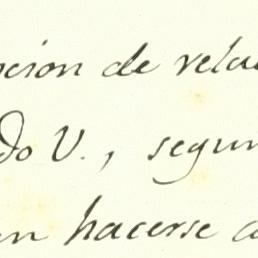 cion de rela
do V., segun
en hacerse a